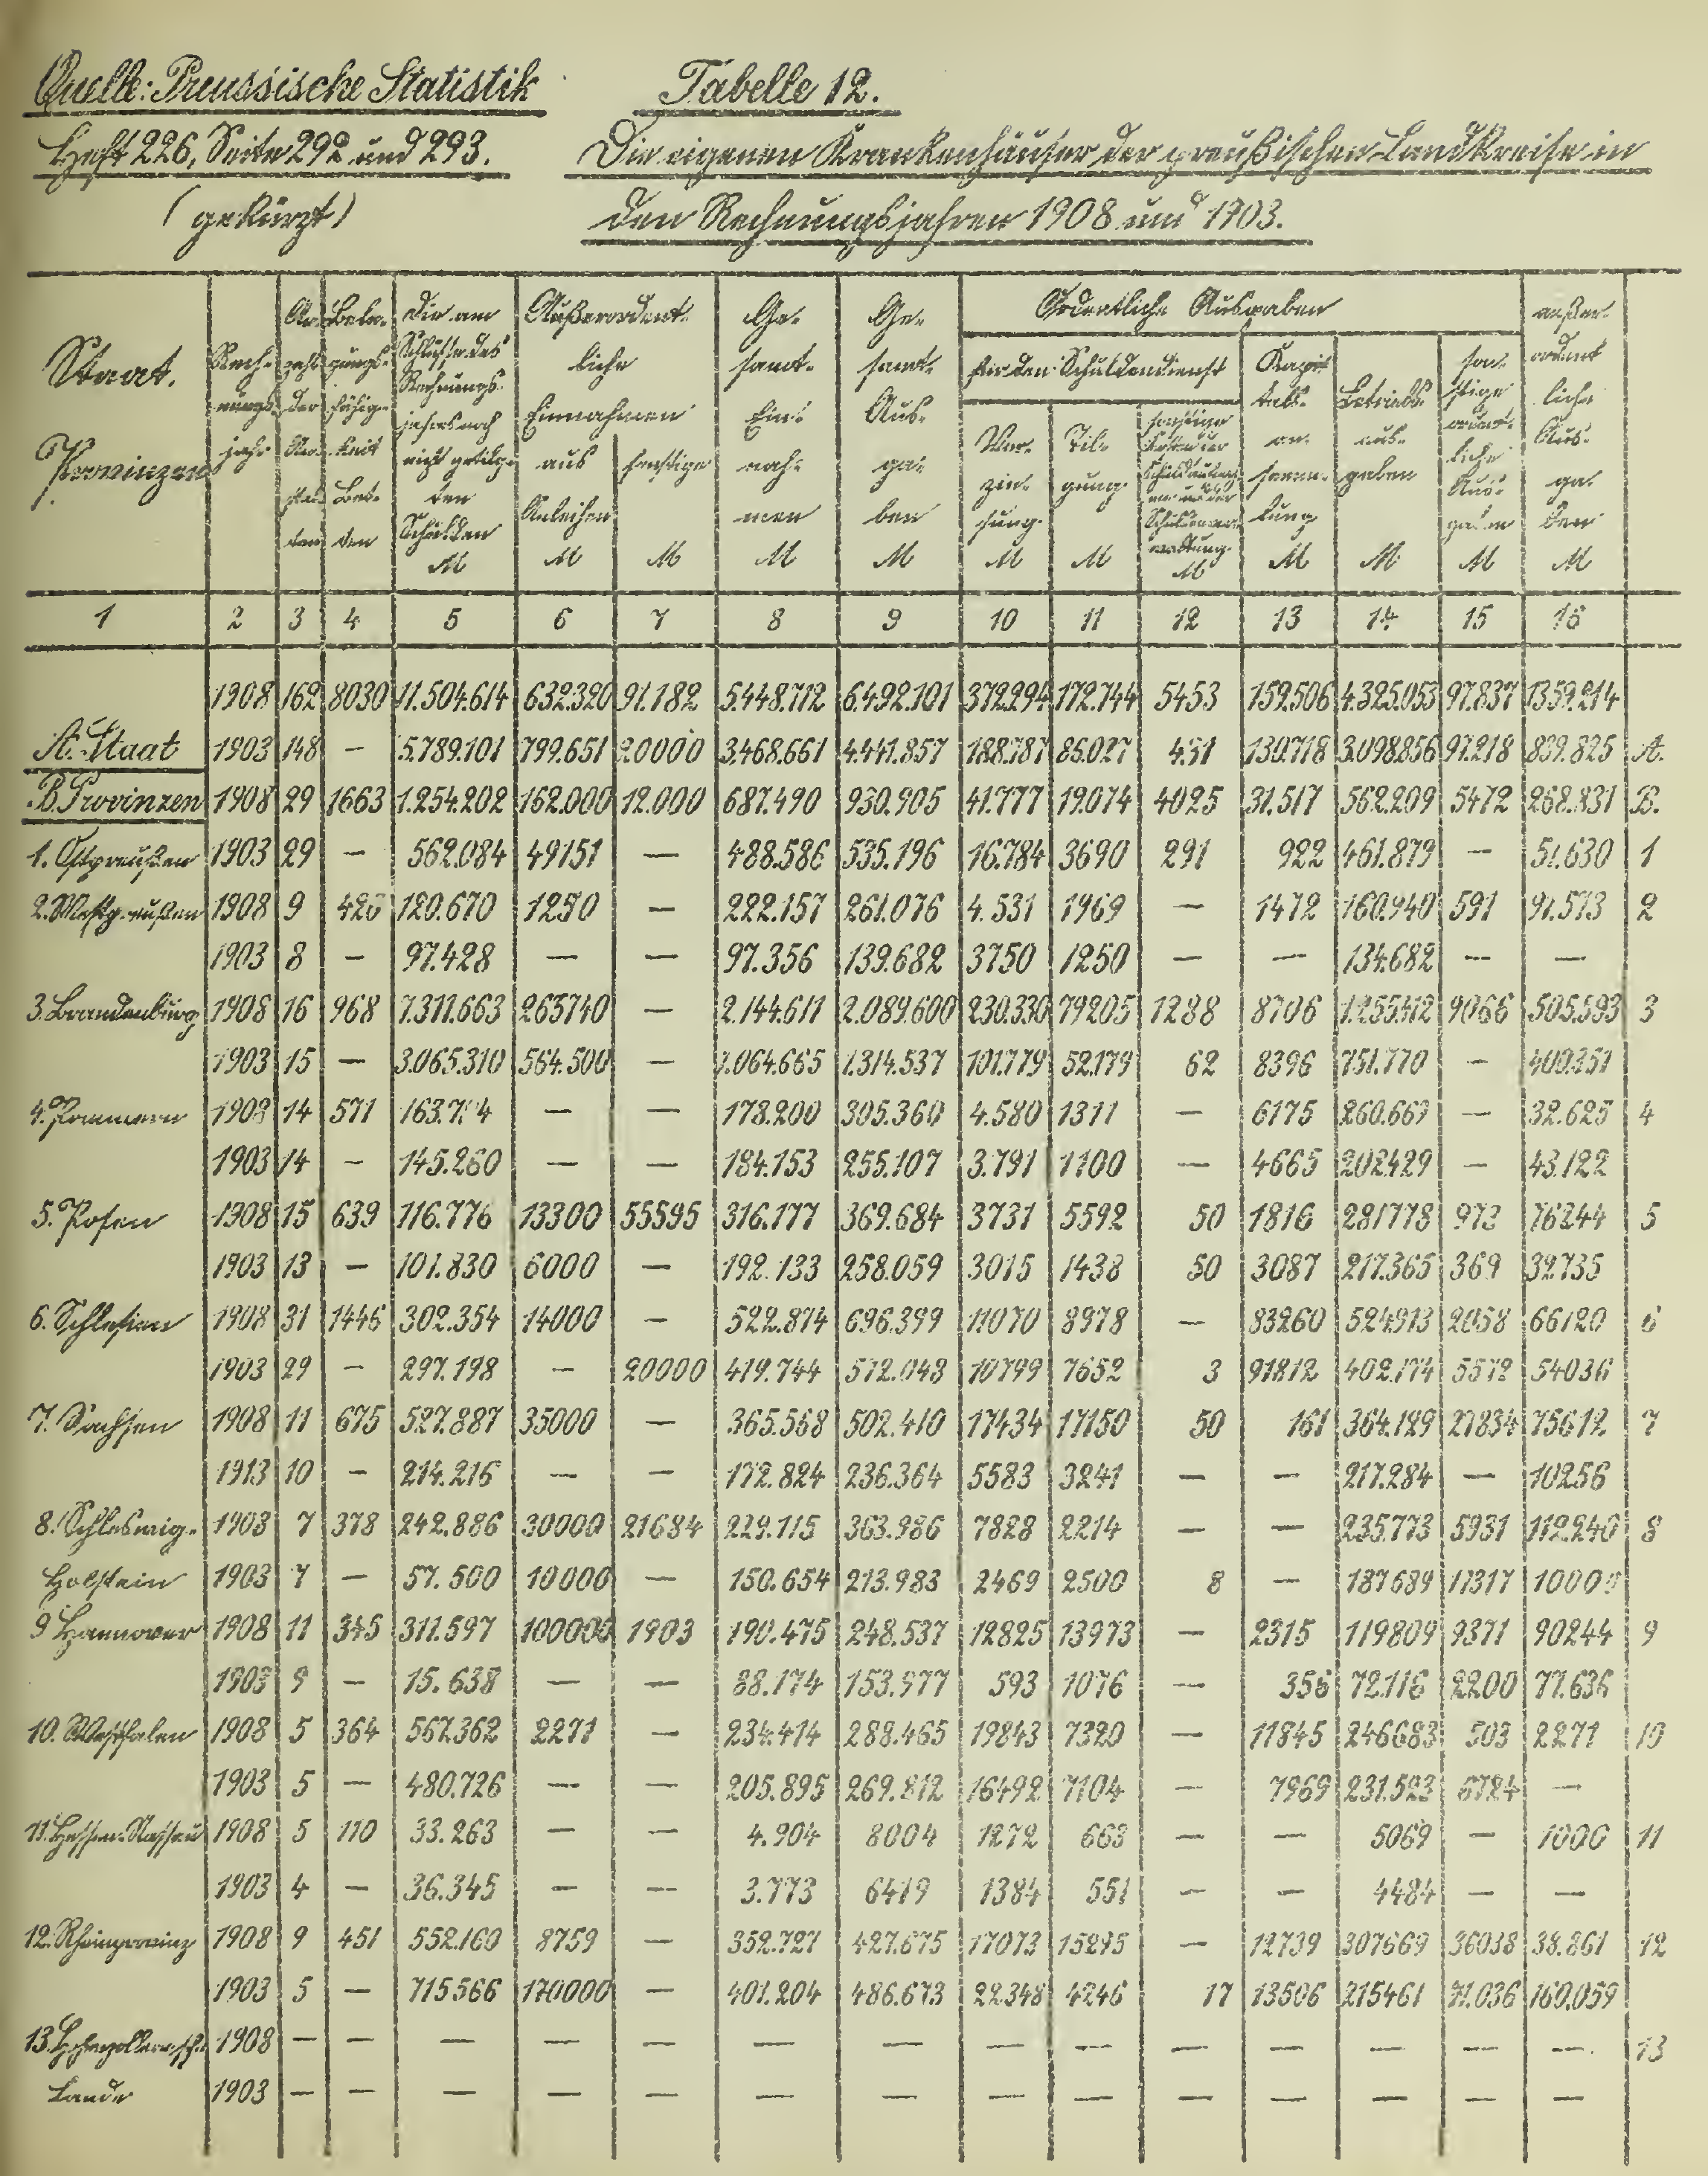 Quelle: Preussische Statistik
Heft 226, Seite 292 und 293.
(gekürzt)
Tabelle 12.
Die eigenen Krankenhäuser der preußischen Landkreise in
den Rechnungsjahren 1908 und 1903.
Staat. Provinzen
Rechnungsjahr
Anzahl der Anstalten
Belegungsfähigkeit Betten
Die am Schlusse des Rechnungsjahres noch nicht getilgten Schulden M
Außerordentliche Einnahmen
aus Anleihen M
sonstige M
Gesamt-Einnahmen M
Gesamt-Ausgaben M
Ordentliche Ausgaben
für den Schuldendienst
Verzinsung M
Tilgung M
Kapitalsansammlung M
Betriebsausgaben M
sonstige ordentliche Ausgaben M
außerordentliche Ausgaben M
1 2 3 4 5 6 7 8 9 10 11 12 13 14 15 16
1908 162 8030 11.504.614 632.320 91.182 5.448.712 6.492.101 372.294 172.744 5453 159.506 4.325.053 97.837 1359.214
A. Staat 1903 148 — 5.789.101 799.651 20000 3.468.661 4.441.857 188.787 85.027 431 130.718 3.098.856 97.218 839.825 A.
B. Provinzen 1908 29 1663 1.254.202 162.000 12.000 687.490 930.905 41.777 19.074 4025 31.517 562.209 5472 268.831 B.
1. Ostpreußen 1903 29 — 562.084 49151 — 488.586 535.196 16.784 3690 291 922 461.879 — 51.630 1
2. Westpreußen 1908 9 426 120.670 1250 — 222.157 261.076 4.531 1969 — 1472 160.940 591 91.573 2
1903 8 — 97.428 — — 97.356 139.682 3750 1250 — — 134.682 — —
3. Brandenburg 1908 16 968 7.311.663 263740 — 2.144.611 2.089.600 230.330 79205 1288 8706 1.255.412 9066 505.593 3
1903 15 — 3.065.310 564.500 — 1.064.665 1.314.537 101.779 52.179 62 8396 751.770 — 400.351
4. Pommern 1908 14 571 — — 178.200 305.360 4.580 1311 — 6175 260.669 — 32.625 4
1903 14 — 145.260 — — 184.153 255.107 3.791 1100 — 4665 202429 — 43.122
5. Posen 1908 15 639 116.776 13300 55595 316.177 369.684 3731 5592 50 1816 281778 973 76244 5
1903 13 — 101.830 6000 — 192.133 258.059 3015 1438 50 3087 217.365 369 32735
6. Schlesien 1908 31 1446 302.354 14000 — 522.874 696.399 11070 8978 — 83260 524913 2058 66120 6
1903 29 — 297.198 — 20000 419.744 572.048 10799 7652 3 91812 402.174 5572 54036
7. Sachsen 1908 11 675 527.887 35000 — 365.568 502.410 17434 17150 50 161 364.189 27834 75612 7
1913 10 — 214.216 — — 172.824 236.364 5583 3241 — — 217.284 — 10256
8. Schleswig- 1903 7 378 242.886 30000 21684 229.115 363.986 7828 2214 — — 235.773 5931 112.240 8
Holstein 1903 7 — 57.500 10000 — 150.654 213.983 2469 2500 8 — 187689 11317 10000
9 Hannover 1908 11 345 311.597 100000 1903 190.475 248.537 12825 13973 — 2315 119809 9371 90244 9
1903 9 — 15.638 — — 88.174 153.977 593 1076 — 356 72.116 2200 77.636
10. Westfalen 1908 5 364 567.362 2271 — 234.414 288.465 19843 7320 — 11845 246683 503 2271 10
1903 5 — 480.726 — — 205.895 269.812 16492 7104 — 7969 231.523 6724 —
11. Hessen-Nassau 1908 5 110 33.263 — — 4.904 8004 1272 663 — — 5069 — 1000 11
1903 4 — 36.345 — — 3.773 6419 1384 551 — — 4484 — —
12. Rheinprovinz 1908 9 451 552.160 8759 — 352.727 427.675 17073 15295 — 12739 307669 36038 38.861 12
1903 5 — 715566 170000 — 401.204 486.673 22.348 4246 17 13506 215461 71.036 160.059
13. Hohenzollernsche 1908 — — — — — — — — — — — — — — 13
Lande 1903 — — — — — — — — — — — — — —